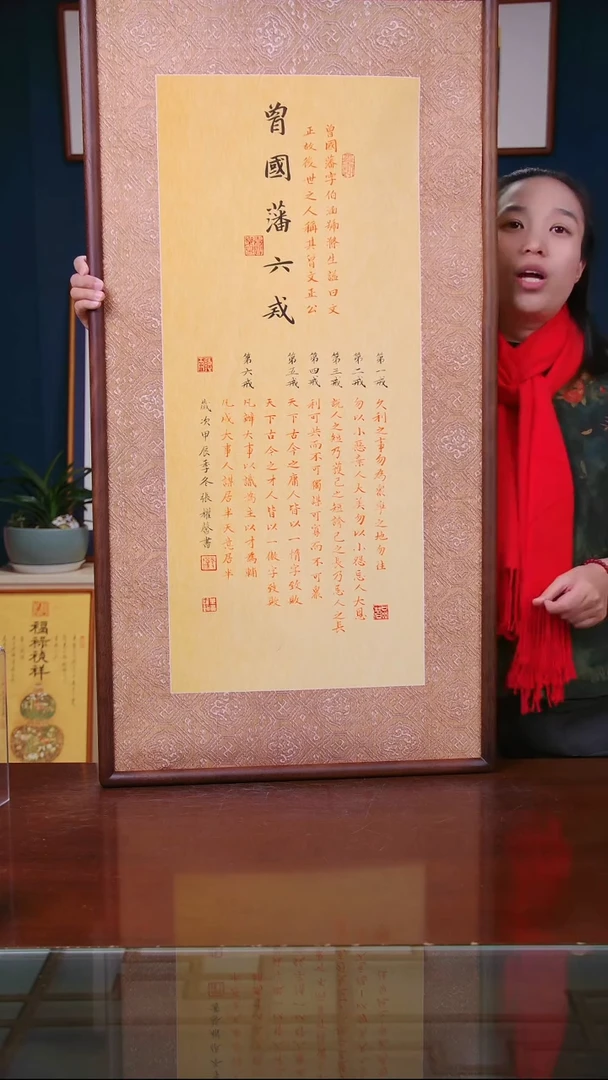 曾國藩六戒
曾國藩字伯涵號滌生謚曰文
正故後世之人稱其曾文正公
第一戒 久利之事勿為眾爭之地勿往
第二戒 勿以小惡棄人大美勿以小怨忘人大恩
第三戒 說人之短乃護己之短誇己之長乃忌人之長
第四戒 利可共而不可獨謀可寡而不可眾
第五戒 天下古今之庸人皆以一惰字致敗
天下古今之才人皆以一傲字致敗
第六戒 凡辦大事以識為主以才為輔
凡成大事人謀居半天意居半
歲次甲辰季冬張耀書
福祿禎祥